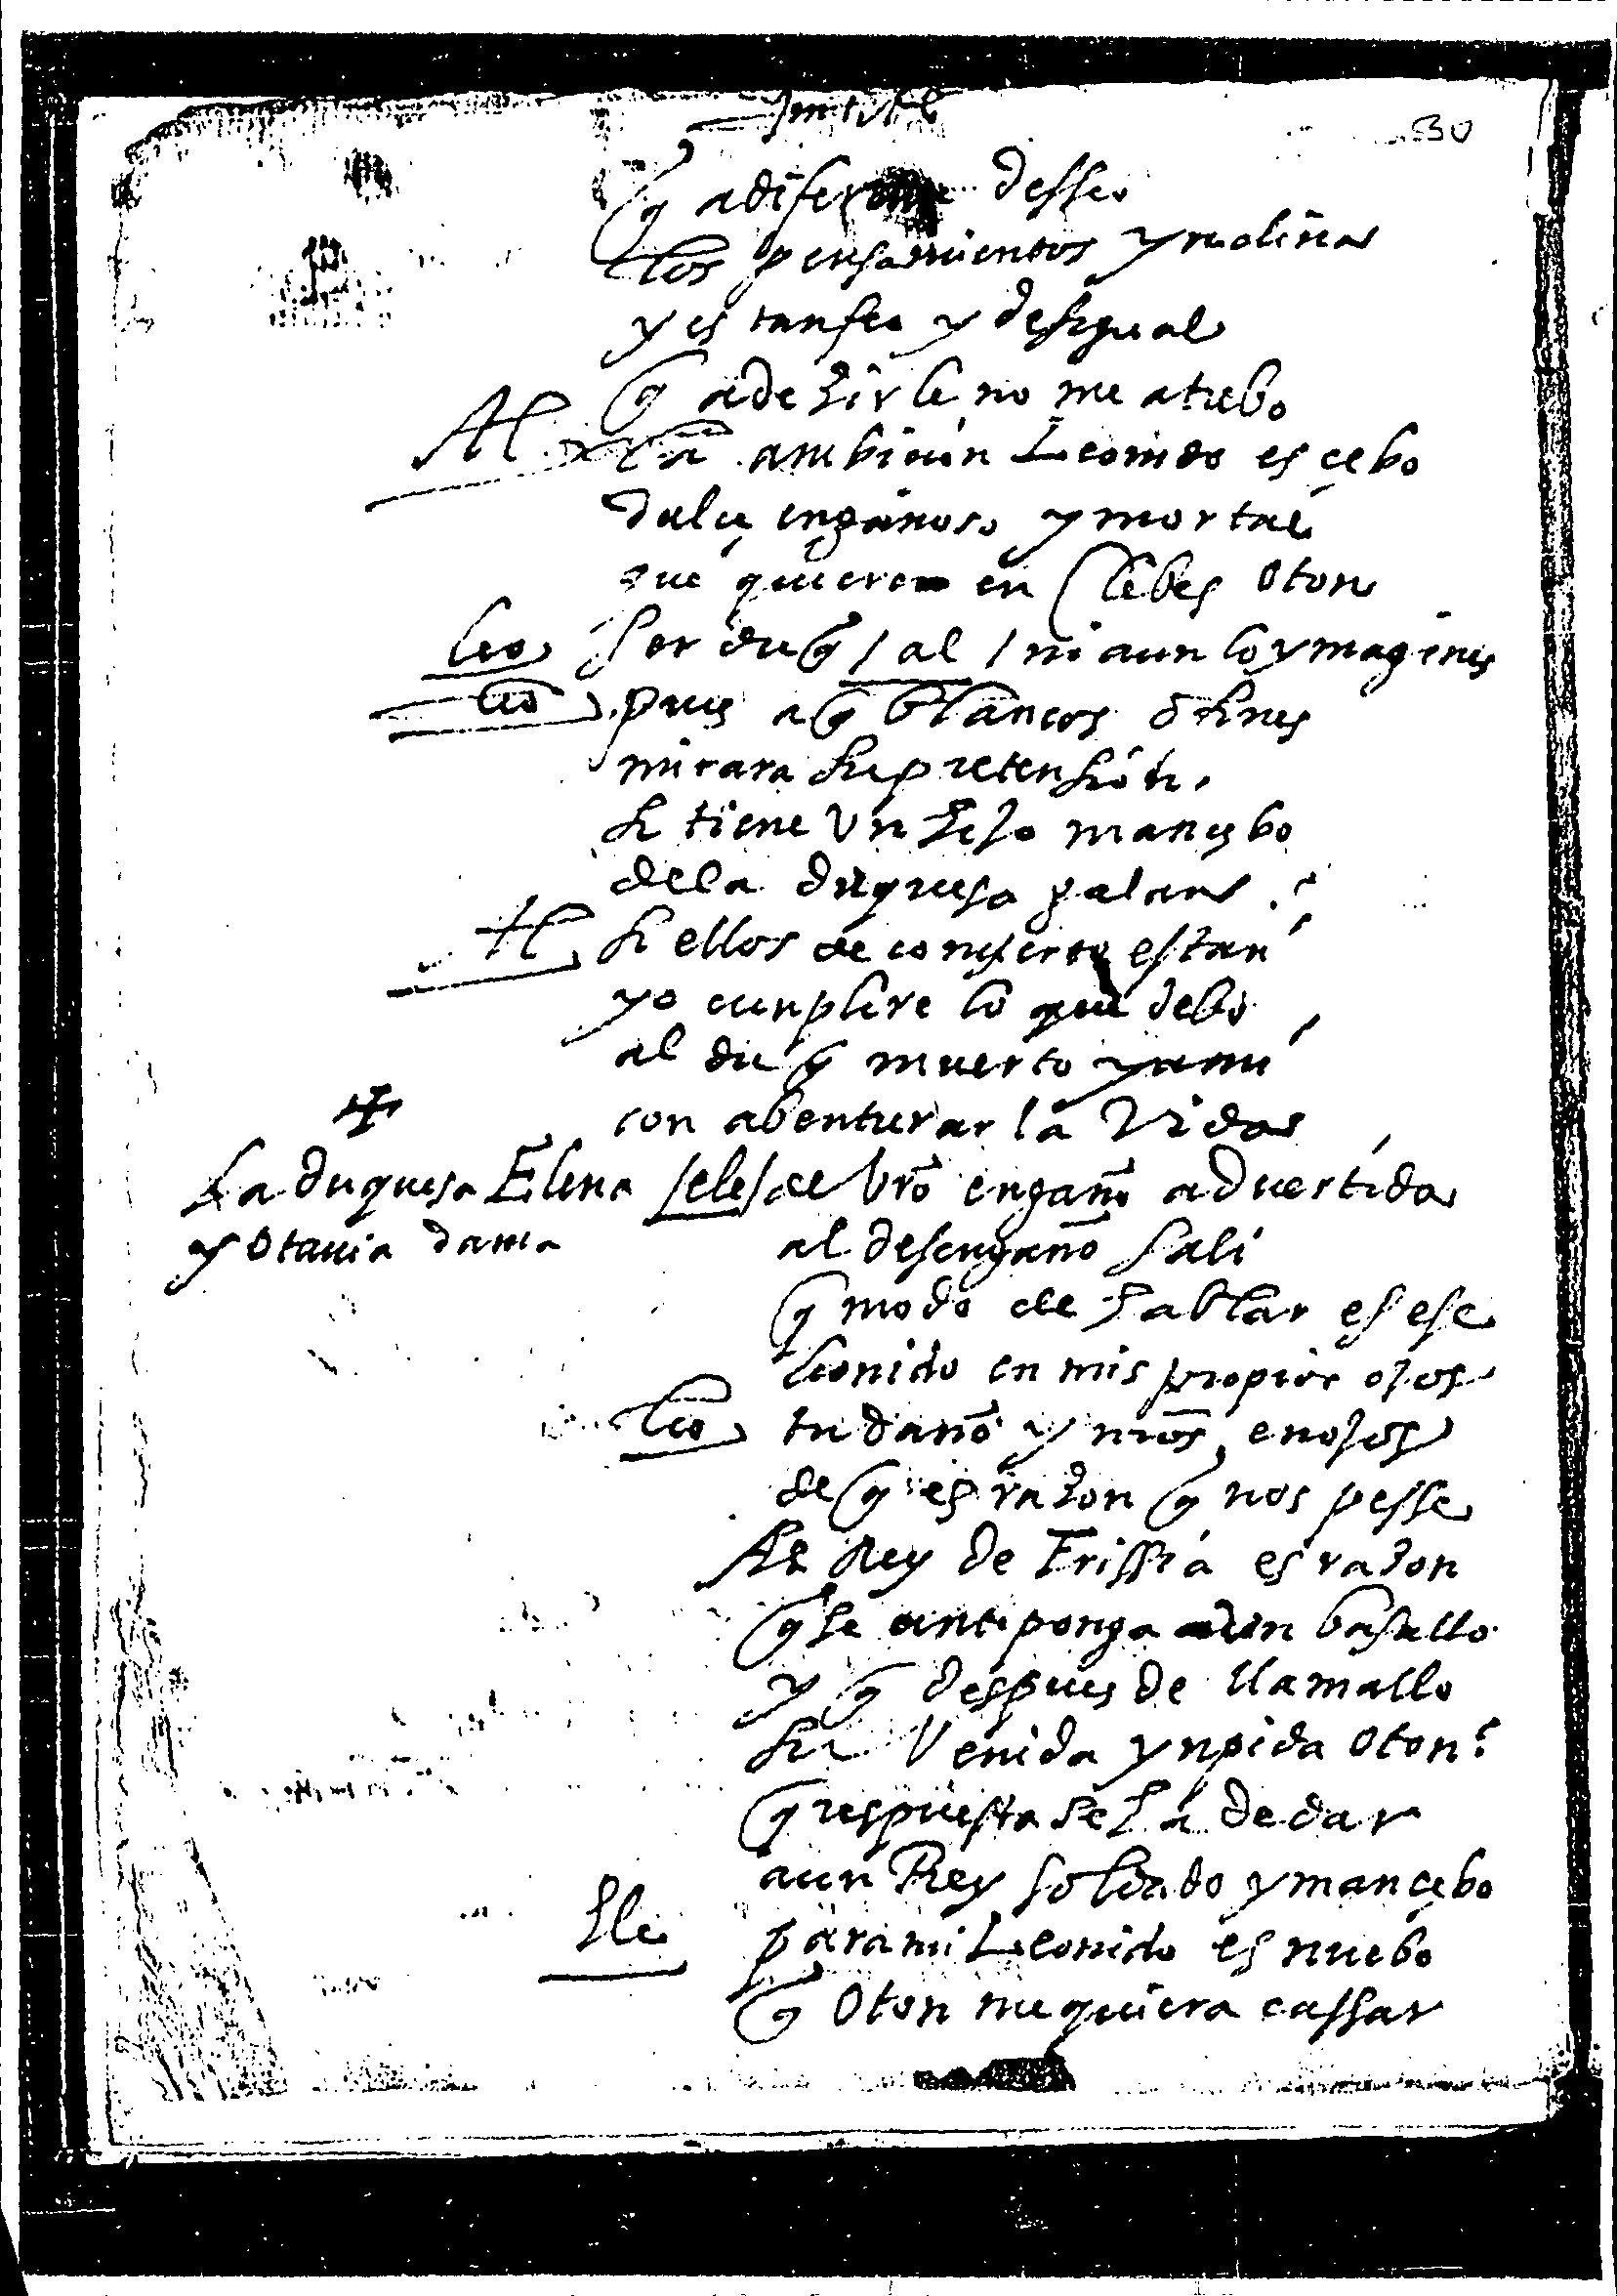 30
q̃ a diferente desseo
los pensamientos ynclina
y es tan feo y desigual
q̃ a dezirle no me atrebo
Al la ambiçion Leonido es çebo
dulçe engañoso y mortal
que quiere en Clebes Oton
Leo ser duq̃ / al / ni aun lo ymagines
Leo pues a q̃ blancos o fines
mirara su pretension
si tiene Un hijo mançebo
de la duquesa galan
Al si ellos de conçierto estan
yo cunplire lo que debo
al duq̃ muerto y a mi
con abenturar la Vida
La duquesa Elena /ele/ de vr̃o engaño aduertida
y Otauia dama al desengaño sali
q̃ modo de hablar es ese
leonido en mis propios ojos
Leo tu daño y nr̃os enojos
de q̃ es razon q̃ nos pesse
Al Rey de Frissia es razon
q̃ se anteponga a un basallo
y q̃ despues de llamallo
su Venida ynpida Oton
q̃ respuesta se ha de dar
a un Rey soldado y mançebo
Ele para mi Leonido es nuebo
q̃ Oton me quiera cassar